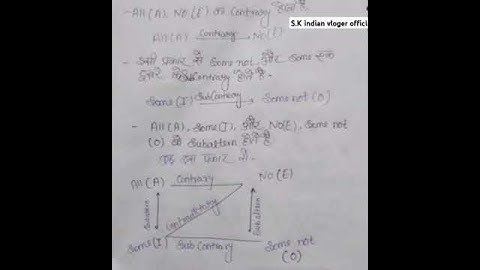 S.K indian vloger offici
- All(A), No(E) का Contrary होता है
All(A) Contrary No(E)
- इसी प्रकार से Some not और Some एक
दूसरे के SubContrary होते हैं.
Some(I) SubContrary Some not (O)
- All(A), Some(I), और No(E), Some not
(O) के Subaltern होते हैं
इस प्रकार से.
All(A) Contrary No(E)
Subaltern Contradictory Subaltern
Some(I) Sub Contrary Some not
(O)